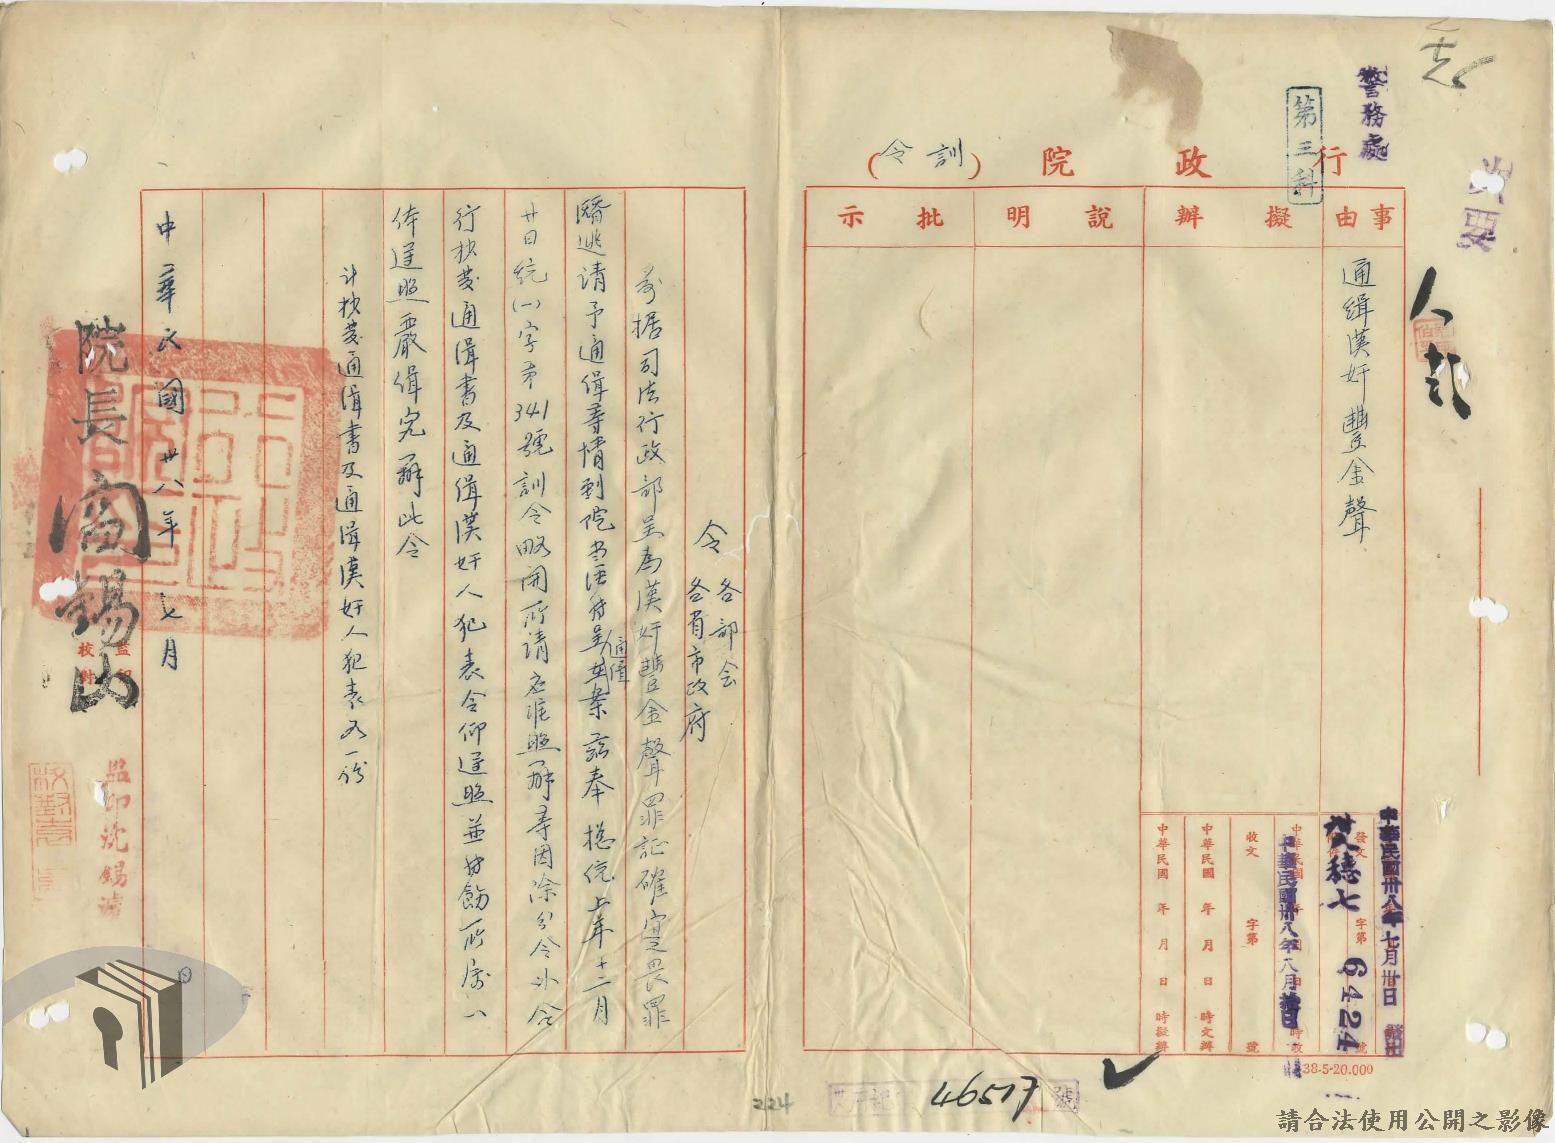 警務處
第三科
行政院（訓令）
事由
擬辦
說明
批示
通緝漢奸豐金聲
中華民國卅八年七月卅日
發文
字第
號
穗七
6424
中華民國卅八年八月
收文 字第 號
中華民國 年 月 日 時交辦
中華民國 年 月 日 時擬辦
38-5-20.000
46517 號
224
令 各部会
各省市政府
案据司法行政部呈為漢奸豐金聲罪証確定畏罪
潛逃請予通緝等情到院当經轉呈通緝在案茲奉 總統上年十二月
廿日統(一)字第341號訓令略開所請应准照辦等因除分令外合
行抄發通緝書及通緝漢奸人犯表令仰遵照並转飭所屬一
体遵照嚴緝究辦此令
計抄發通緝書及通緝漢奸人犯表各一份
中華民國卅八年七月 日
院長閻錫山
監印
校對
請合法使用公開之影像